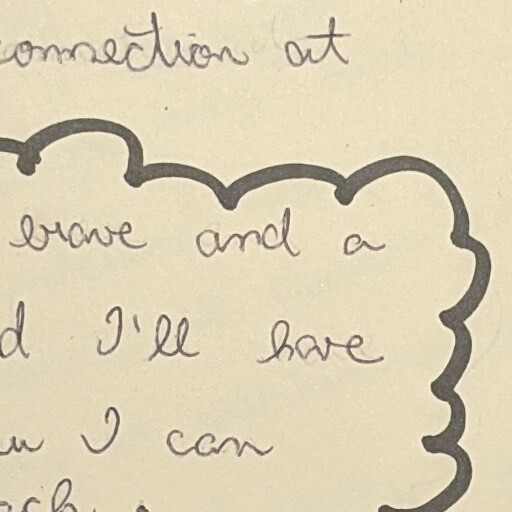 connection at
brave and a
I'll have
I can